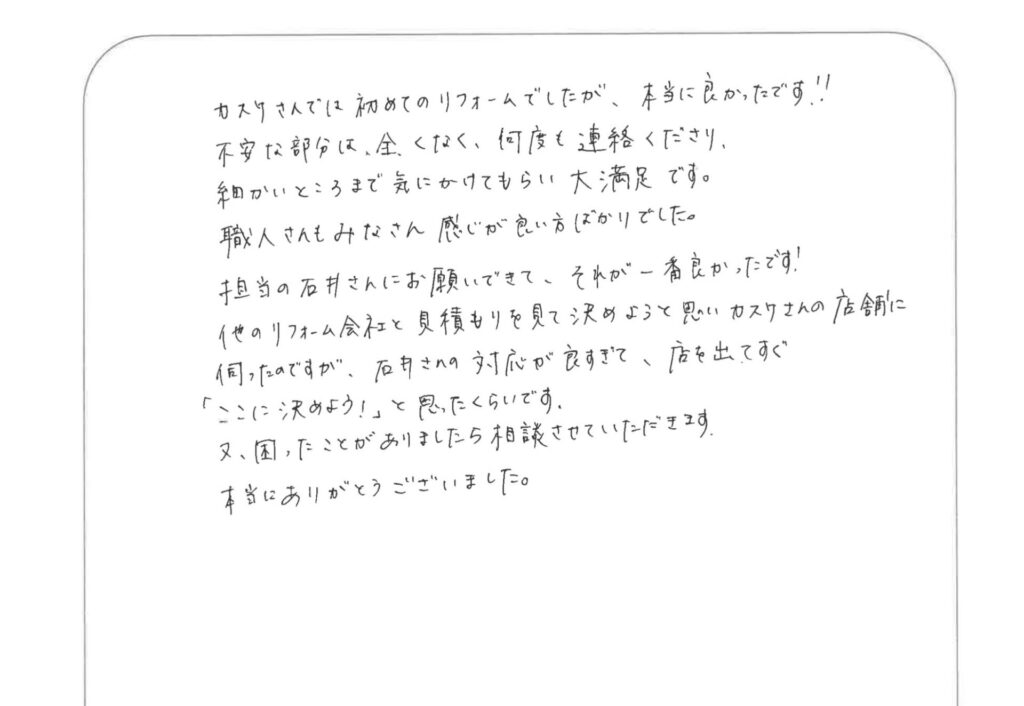 カスケさんでは初めてのリフォームでしたが、本当に良かったです!!
不安な部分は、全くなく、何度も連絡くださり、
細かいところまで気にかけてもらい大満足です。
職人さんもみなさん感じが良い方ばかりでした。
担当の石井さんにお願いできて、それが一番良かったです!
他のリフォーム会社と見積もりを見て決めようと思いカスケさんの店舗に
伺ったのですが、石井さんの対応が良すぎて、店を出てすぐ
「ここに決めよう!」と思ったくらいです。
又、困ったことがありましたら相談させていただきます。
本当にありがとうございました。